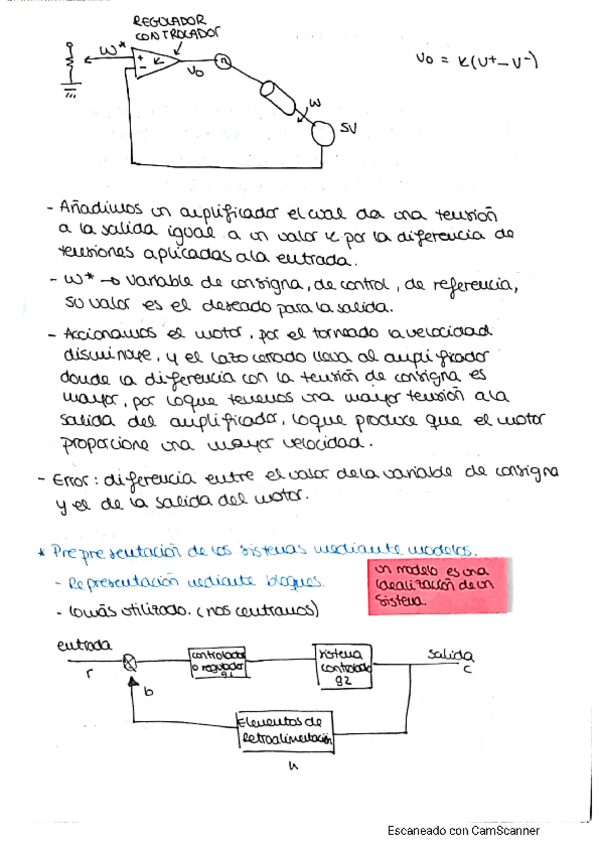 REGULADOR
CONTROLADOR
w*
+
-
K
vo
w
SV
vo = K(v+ - v-)
- Añadimos un amplificador el cual da una tensión
a la salida igual a un valor K por la diferencia de
tensiones aplicadas a la entrada.
- w* → variable de consigna, de control, de referencia,
su valor es el deseado para la salida.
- Accionamos el motor, por el torneado la velocidad
disminuye, y el lazo cerrado lleva al amplificador
donde la diferencia con la tensión de consigna es
mayor, por lo que tenemos una mayor tensión a la
salida del amplificador, lo que produce que el motor
proporcione una mayor velocidad.
- Error: diferencia entre el valor de la variable de consigna
y el de la salida del motor.
* Prepresentación de los sistemas mediante modelos.
- Representación mediante bloques.
un modelo es una
idealización de un
sistema.
- lo más utilizado. (nos centramos)
entrada
r
controlador
o regulador
g1
sistema
controlado
g2
salida
c
b
Elementos de
retroalimentación
h
Escaneado con CamScanner